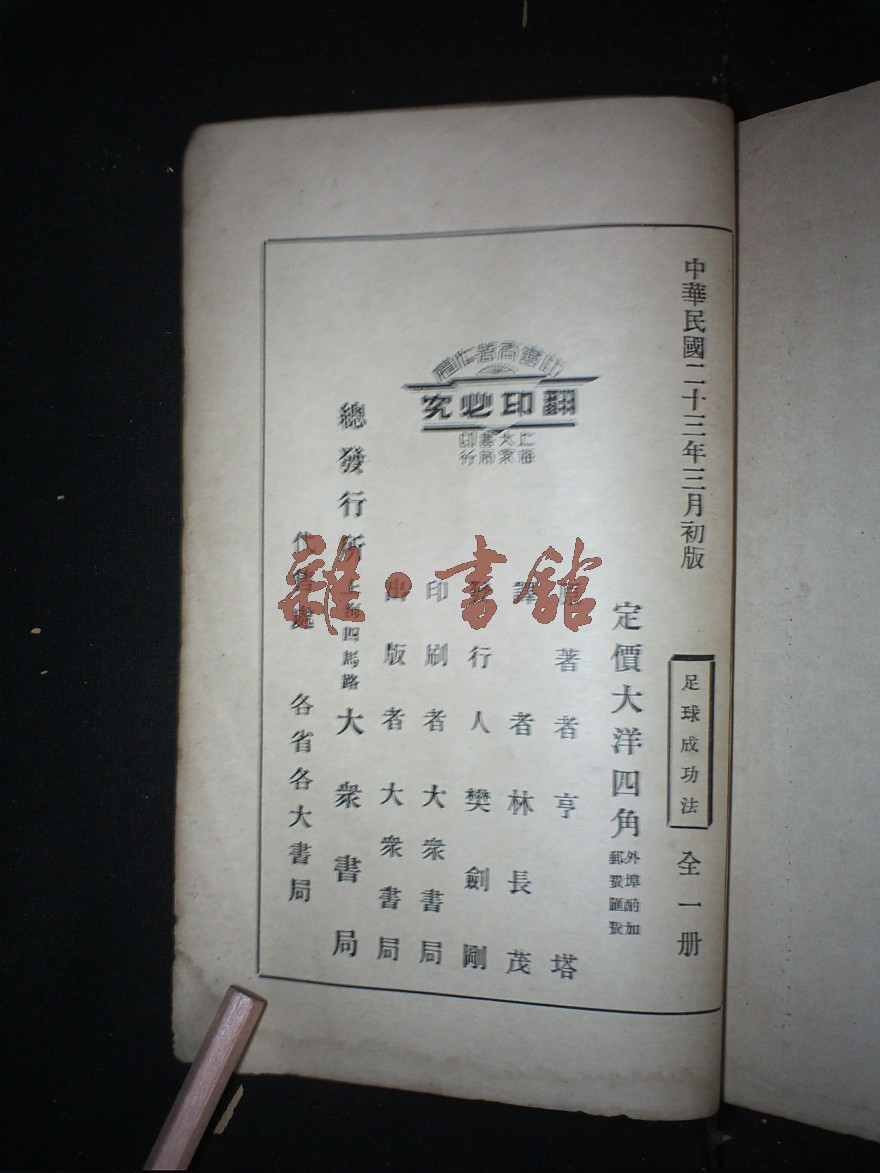 中華民國二十三年三月初版
足球成功法
全一册
定價大洋四角
外埠酌加
郵費匯費
原著者亨塔
譯者林長茂
發行人樊劍剛
印刷者大衆書局
出版者大衆書局
總發行所上海四馬路大衆書局
代售處各省各大書局
此書有著作權
翻印必究
上海
大衆
書局
印行
雜·書館